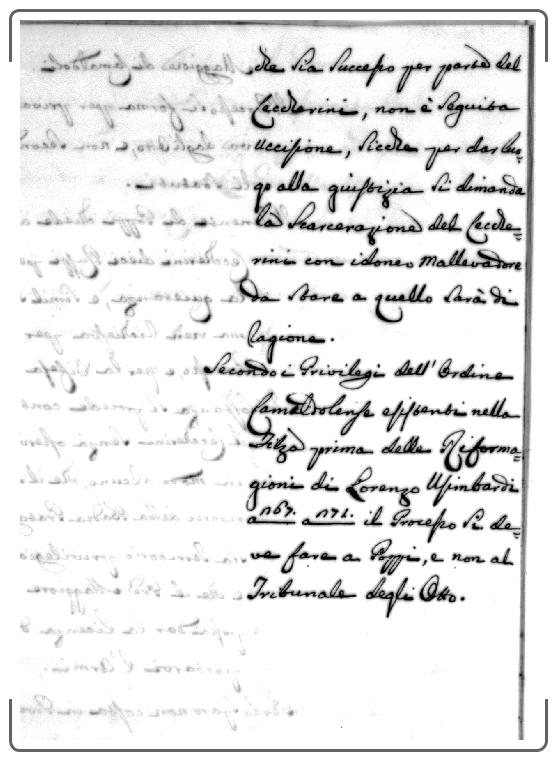 che sia successo per parte del
Ceccherini, non è seguita
uccisione, sicche per dar luo=
go alla giustizia si dimanda
la scarcerazione del Cecche=
rini con idoneo mallevadore
da stare a quello sarà di
ragione.
Secondo i Privilegi dell' Ordine
Camaldolense esistenti nella
Filza prima delle Riforma=
gioni di Lorenzo Usimbardi
a 167. a 171. il Processo si de=
ve fare a Poppi, e non al
Tribunale degli Otto.